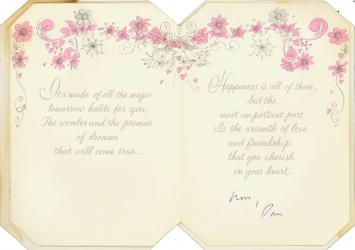 It's made of all the magic
tomorrow holds for you,
The wonder and the promise
of dreams
that will come true....
Happiness is all of these,
but the
most important part
Is the warmth of love
and friendship
that you cherish
in your heart.